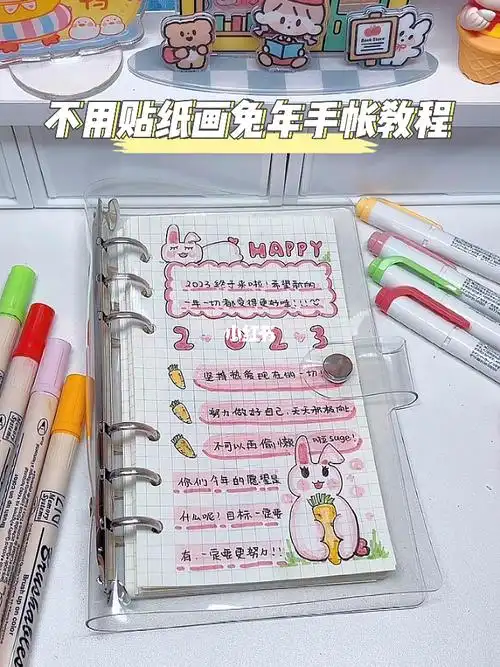 不用贴纸画兔年手帐教程
HAPPY
2023终于来啦！希望新的
一年一切都变得更好哇！！
2023
小红书
坚持热爱现在的一切
努力做好自己，天天积极向上
不可以再偷懒 啦suge!
你们今年的愿望是
什么呢！目标一定要
有，一定要更努力！！
Book Store
Marker
System
Brushables
Brush up on color